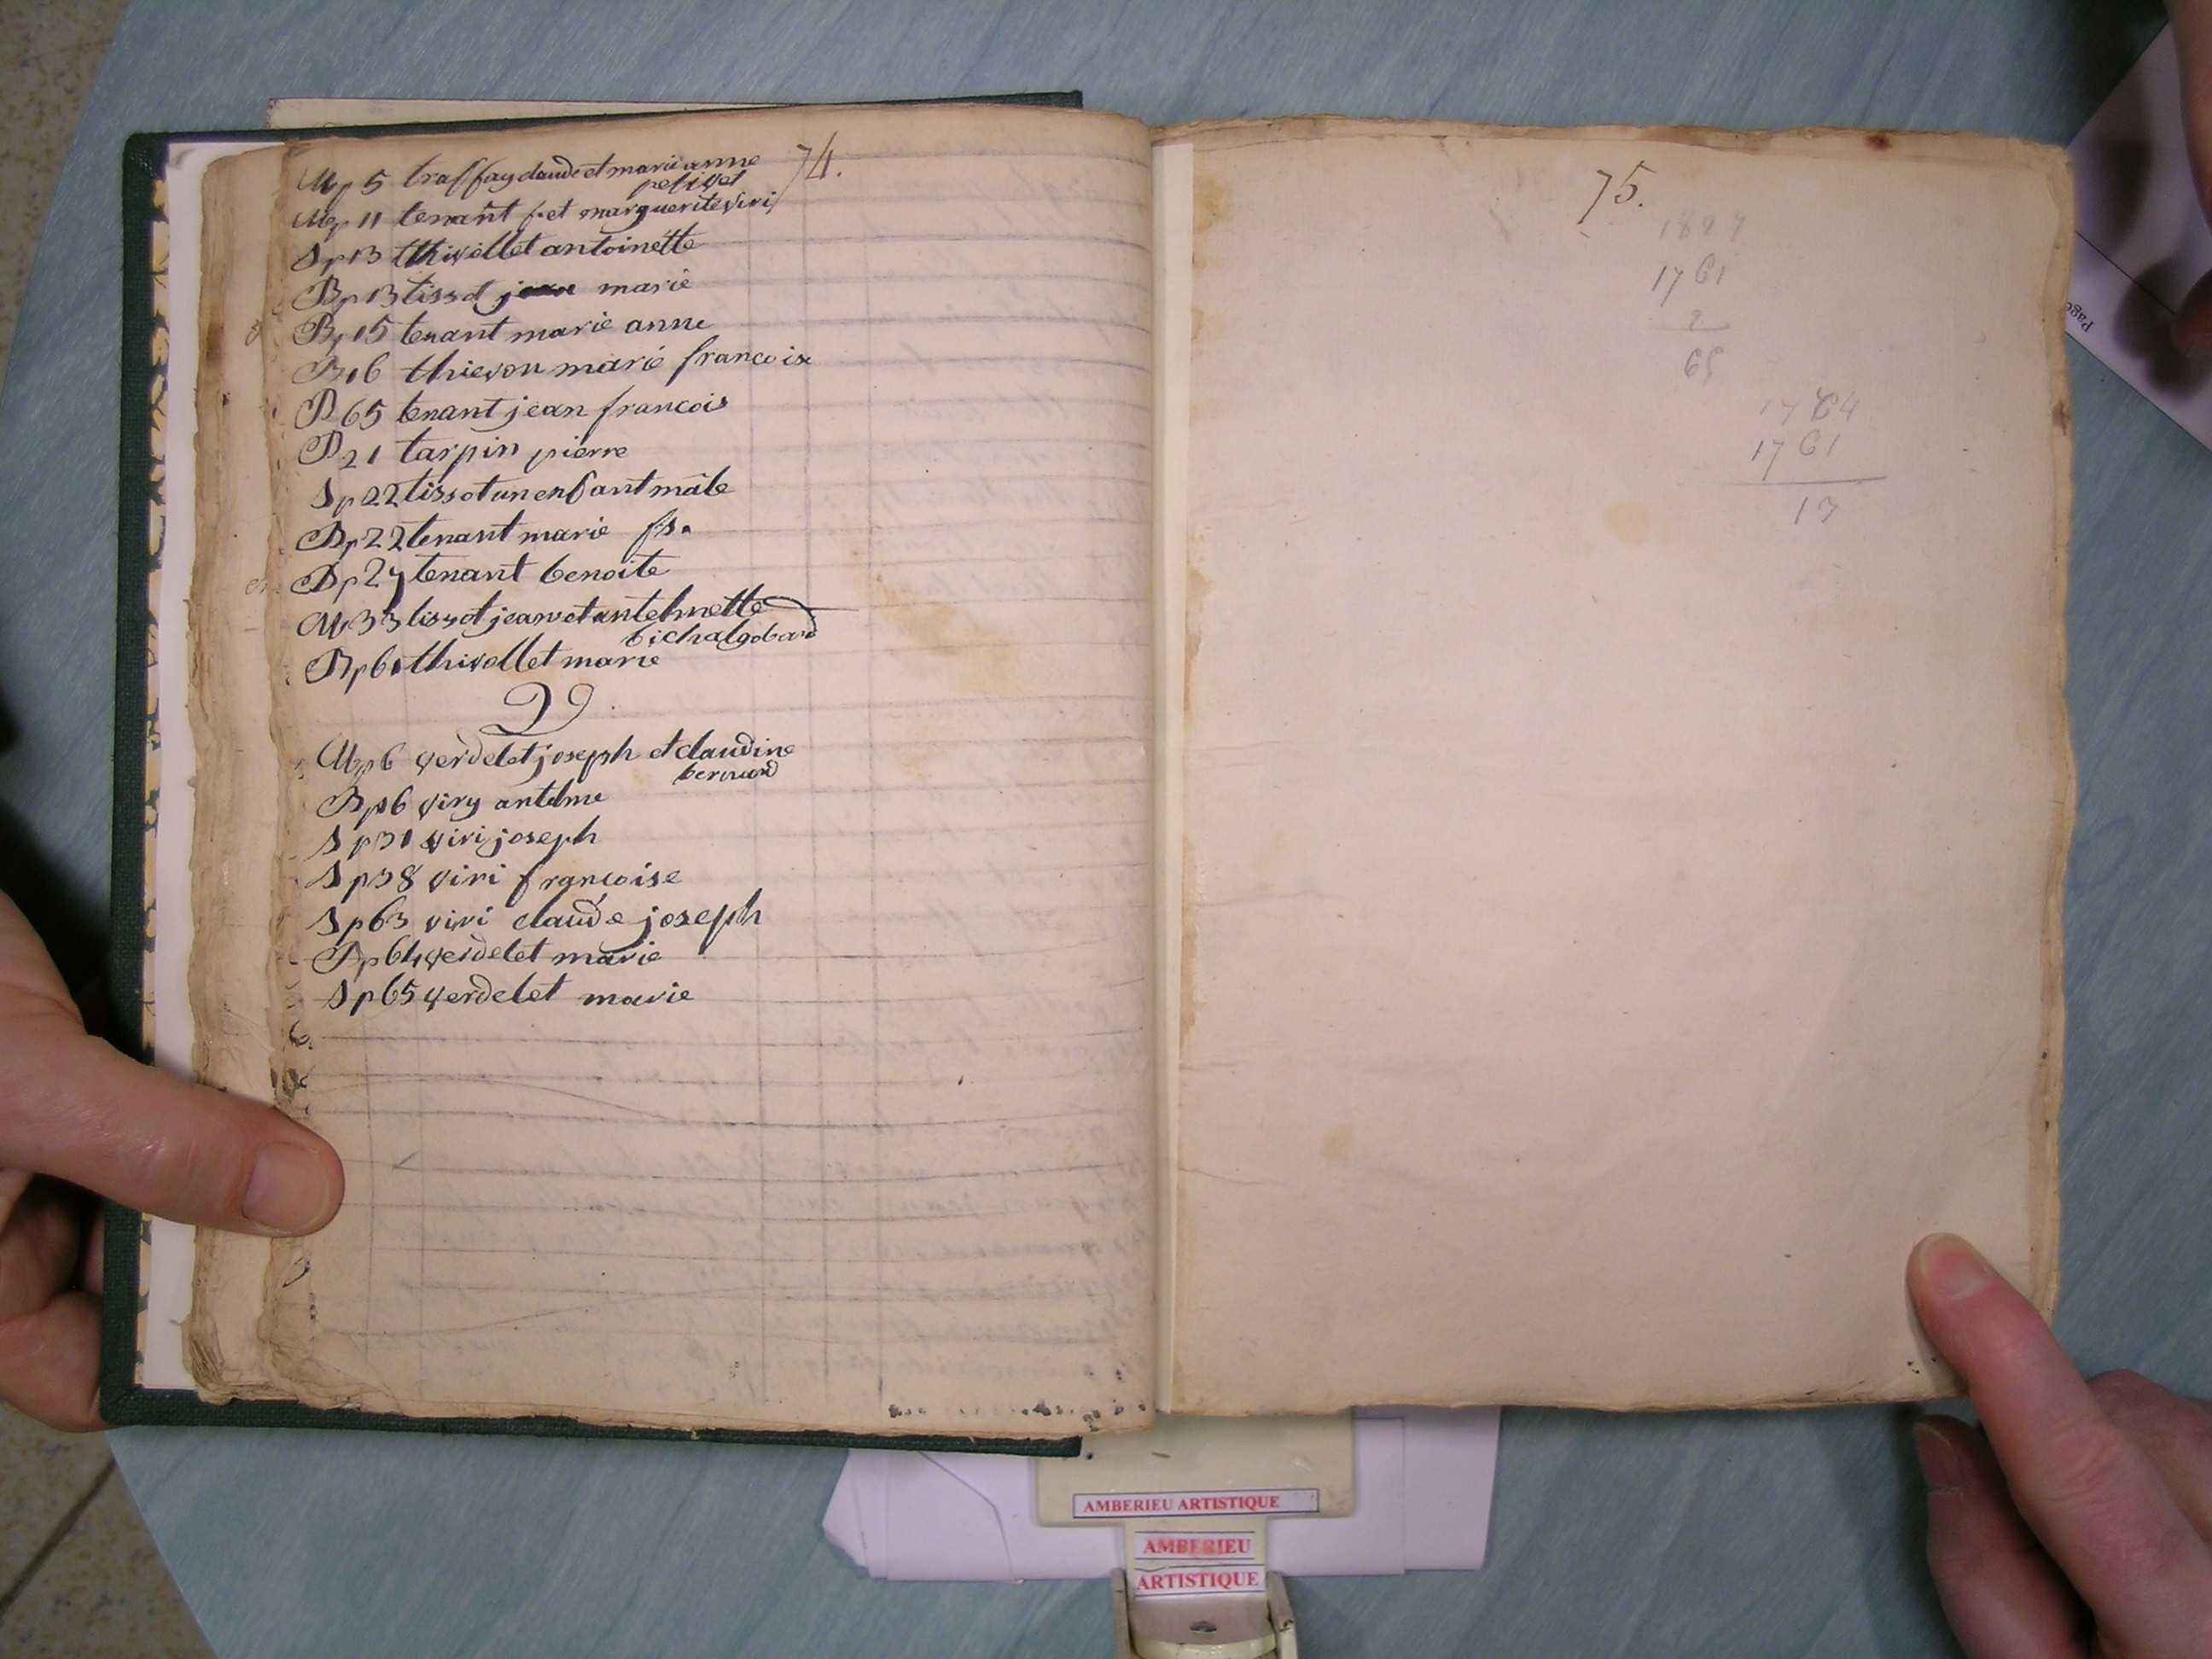 74.
Mp 5 traffay claude et marie anne
petivet
Mp 11 tenant f. et marguerite viri
Sp 13 thivollet antoinette
Bp 13 tissot marie
Bp 15 tenant marie anne
B 16 thievon marie francoise
B 65 tenant jean francois
B 21 tarpin pierre
Sp 22 tissot un enfant mâle
Bp 22 tenant marie fs.
Bp 27 tenant benoite
M 33 tissot jean et antelmette
bichat gobard
Bp 61 thivollet marie
V
Mp 6 verdelet joseph et claudine
bernard
Bp 16 viry antelme
Sp 31 viri joseph
Sp 38 viri francoise
Sp 63 viri claude joseph
Bp 64 verdelet marie
Sp 65 verdelet marie
75.
1761
65
1761
13
AMBERIEU ARTISTIQUE
AMBERIEU
ARTISTIQUE
Page